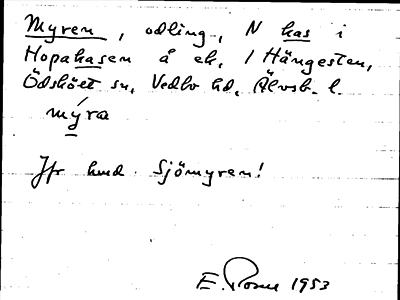 Myren, odling, N has i
Hopahasen å ek, 1 Hängesten,
Ödskölt sn, Vedbo hd, Älvsb. l.
mýra
Jfr hmd Sjömyren!
E. 1953